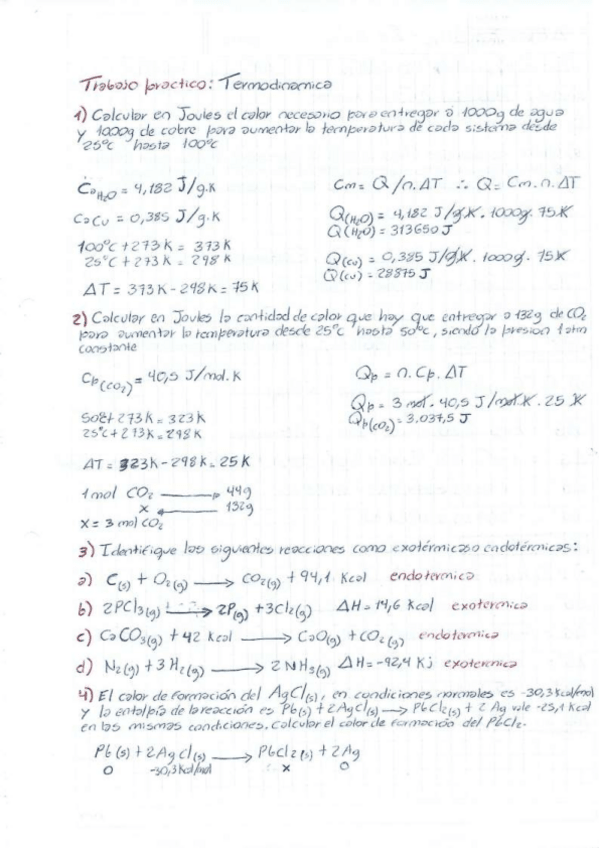 Trabajo practico: Termodinamica
1) Calcular en Joules el calor necesario para entregar a 1000g de agua
y 1000g de cobre para aumentar la temperatura de cada sistema desde
25°C hasta 100°C
Ce H2O = 4,182 J/g.K
Cm = Q/n.ΔT ∴ Q = Cm.n.ΔT
Ce Cu = 0,385 J/g.K
Q(H2O) = 4,182 J/g.K . 1000g . 75K
Q(H2O) = 313650 J
100°C + 273K = 373K
25°C + 273K = 298K
Q(Cu) = 0,385 J/g.K . 1000g . 75K
Q(Cu) = 28875 J
ΔT = 373K - 298K = 75K
2) Calcular en Joules la cantidad de calor que hay que entregar a 132g de CO2
para aumentar la temperatura desde 25°C hasta 50°C, siendo la presion 1 atm
constante
Cp(CO2) = 40,5 J/mol.K
Qp = n.Cp.ΔT
Qp = 3 mol . 40,5 J/mol.K . 25 K
Qp(CO2) = 3.037,5 J
50°C + 273K = 323K
25°C + 273K = 298K
ΔT = 323K - 298K = 25K
1 mol CO2 → 44g
x ← 132g
x = 3 mol CO2
3) Identifique las siguientes reacciones como exotérmicas o endotérmicas:
a) C(s) + O2(g) → CO2(g) + 94,1 Kcal endotermica
b) 2PCl3(g) → 2P(g) + 3Cl2(g) ΔH = 14,6 Kcal exotermica
c) CaCO3(g) + 42 Kcal → CaO(g) + CO2(g) endotermica
d) N2(g) + 3H2(g) → 2NH3(g) ΔH = -92,4 Kj exotermica
4) El calor de formación del AgCl(s), en condiciones normales es -30,3 Kcal/mol
y la entalpía de la reacción es Pb(s) + 2AgCl(s) → PbCl2(s) + 2 Ag vale -25,1 Kcal
en las mismas condiciones, calcular el calor de formación del PbCl2.
Pb(s) + 2AgCl(s) → PbCl2(s) + 2Ag
0 -30,3 Kcal/mol x 0